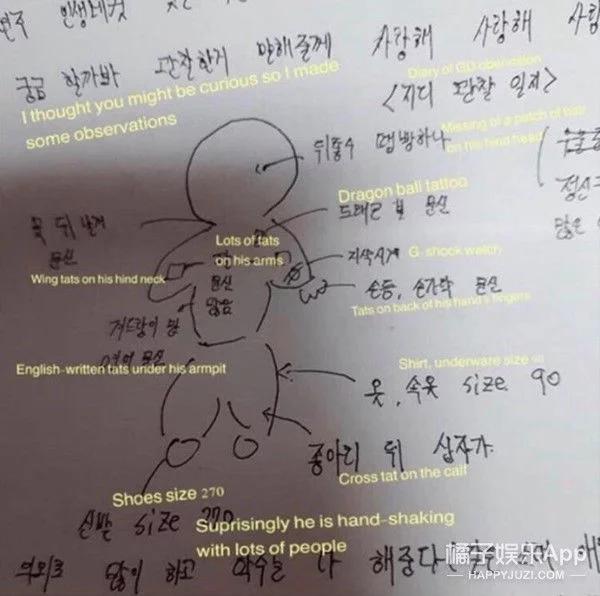 인생네컷
궁금 할까봐 관찰한거 말해줄께 사랑해 사랑해 사랑
I thought you might be curious so I made
some observations
Diary of GD obervation
<지디 관찰 일지>
Missing of a patch of hair
on his hind head
뒤통수 땜빵하나
Dragon ball tattoo
드래곤 볼 문신
목 뒤 날개
문신
Wing tats on his hind neck
Lots of tats
on his arms
문신
많음
지샥시계 G- shock watch
손등, 손가락 문신
Tats on back of his hand & fingers
겨드랑이 밑
영어 문신
English-written tats under his armpit
Shirt, underware size 90
옷, 속옷 size 90
종아리 뒤 십자가
Cross tat on the calf
Shoes size 270
신발 size 270
Suprisingly he is hand-shaking
with lots of people
의외로 많이 하고 악수는 다 해준다
橘子娱乐App
HAPPYJUZI.COM